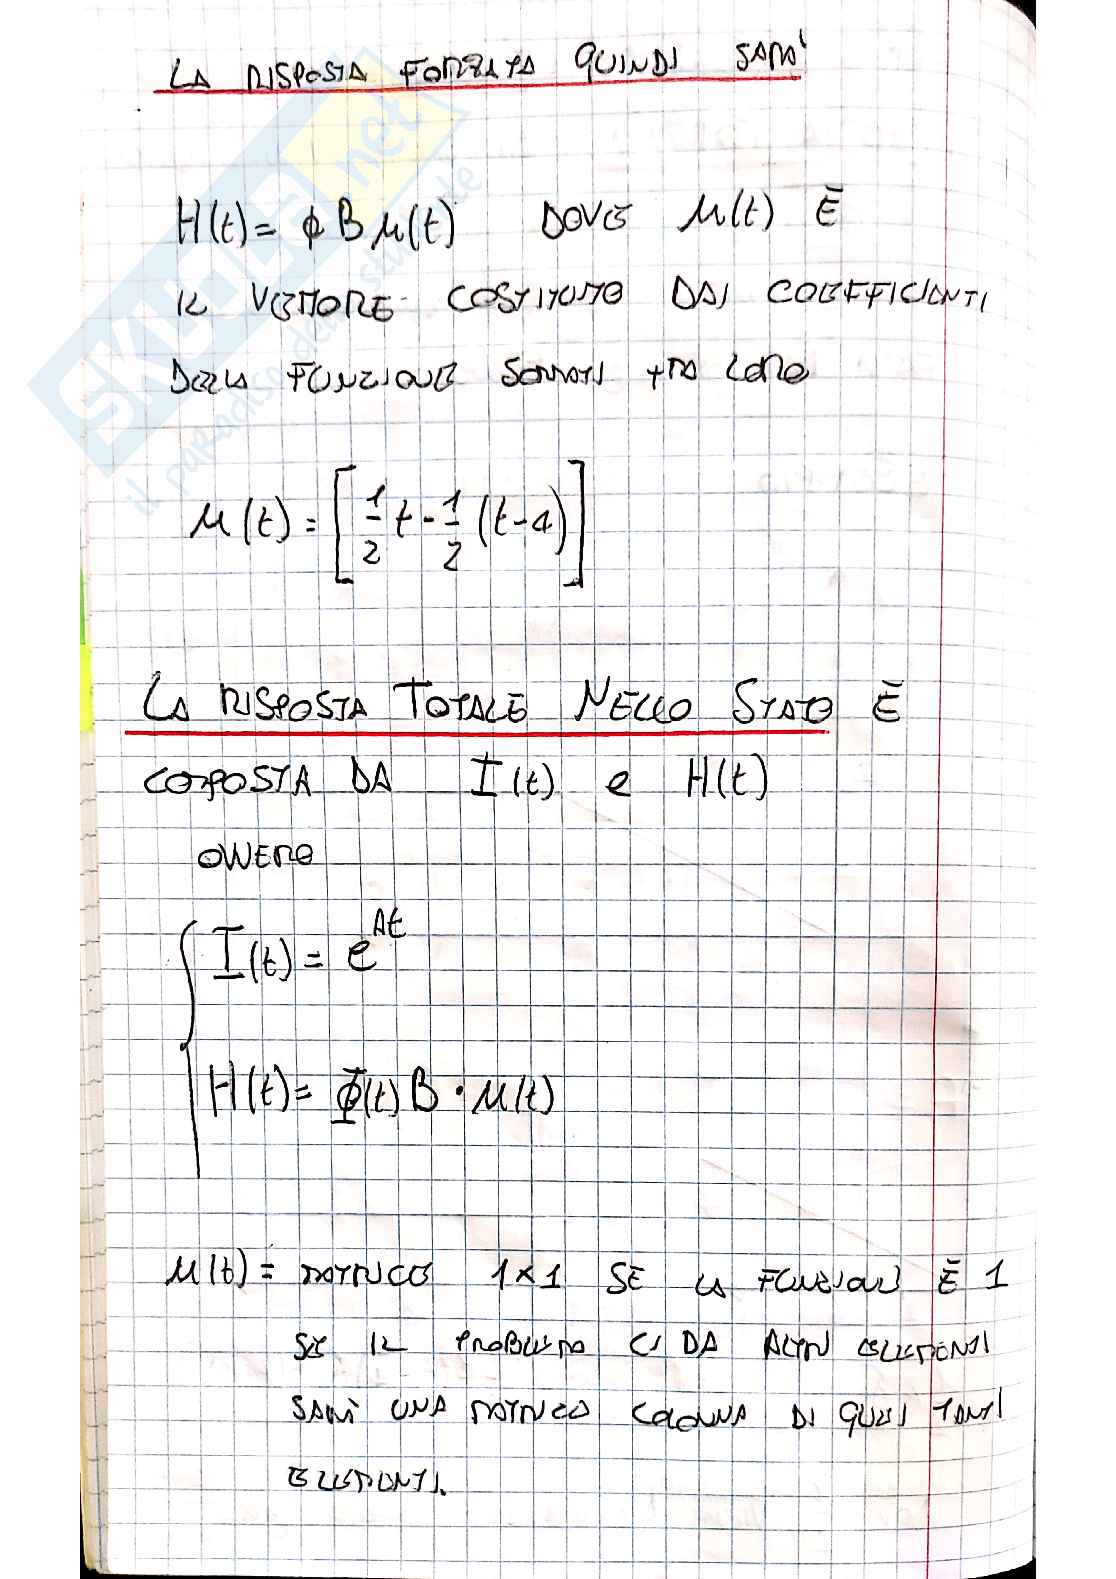 LA RISPOSTA FORZATA QUINDI SARA'
H(t) = ϕ B μ(t) DOVE μ(t) È
IL VETTORE COSTITUITO DAI COEFFICIENTI
DELLA FUNZIONE SOMMATI TRA LORO
μ(t) = [ 1/2 t - 1/2 (t-4) ]
LA RISPOSTA TOTALE NELLO STATO È
COMPOSTA DA I(t) e H(t)
OVVERO
I(t) = e^{At}
H(t) = Φ(t) B · μ(t)
μ(t) = MATRICE 1×1 SE LA FUNZIONE È 1
SE IL PROBLEMA CI DA ALTRI ELEMENTI
SARÀ UNA MATRICE COLONNA DI QUEI TANTI
ELEMENTI.
SKUOLA.net
il paradiso dello studente